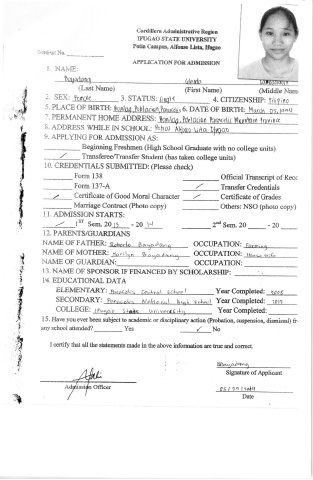 Cordillera Administrative Region
IFUGAO STATE UNIVERSITY
Potia Campus, Alfonso Lista, Ifugao
APPLICATION FOR ADMISSION
1. NAME:
(Last Name) (First Name) (Middle Nam
2. SEX: Female 3. STATUS: Single 4. CITIZENSHIP: Filipino
5. PLACE OF BIRTH: 6. DATE OF BIRTH: March
7. PERMANENT HOME ADDRESS: Mountain Province
8. ADDRESS WHILE IN SCHOOL: Alfonso Lista Ifugao
9. APPLYING FOR ADMISSION AS:
Beginning Freshmen (High School Graduate with no college units)
/ Transferee/Transfer Student (has taken college units)
10. CREDENTIALS SUBMITTED: (Please check)
Form 138 Official Transcript of Reco
Form 137-A / Transfer Credentials
/ Certificate of Good Moral Character / Certificate of Grades
Marriage Contract (Photo copy) Others: NSO (photo copy)
11. ADMISSION STARTS:
/ 1ST Sem. 20 13 - 20 14 2nd Sem. 20 - 20
12. PARENTS/GUARDIANS
NAME OF FATHER: Roberto OCCUPATION: Farming
NAME OF MOTHER: Marilyn OCCUPATION: House wife
NAME OF GUARDIAN: OCCUPATION:
13. NAME OF SPONSOR IF FINANCED BY SCHOLARSHIP:
14. EDUCATIONAL DATA
ELEMENTARY: Paracelis Central School Year Completed:
SECONDARY: Paracelis National High School Year Completed:
COLLEGE: Ifugao State University Year Completed:
15. Have you ever been subject to academic or disciplinary action (Probation, suspension, dismissal) fr
any school attended? Yes / No
I certify that all the statements made in the above information are true and correct.
Signature of Applicant
Admission Officer
Date